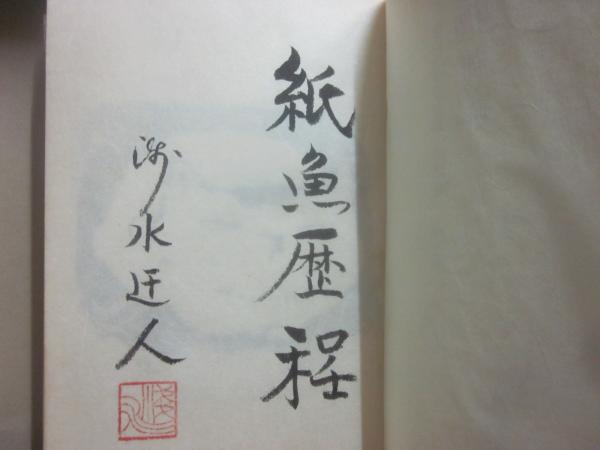 紙魚歴程
浅水迂人